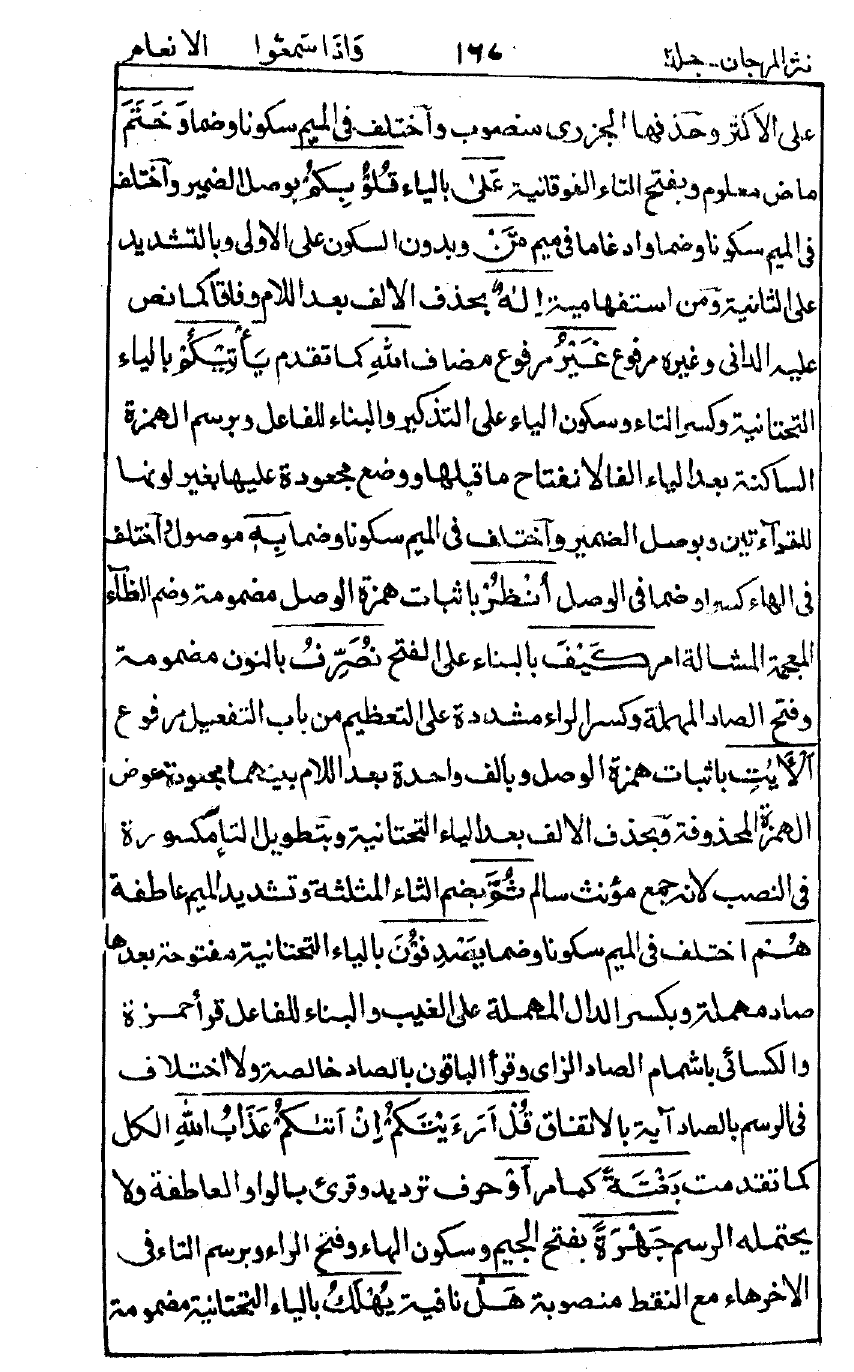 نثر المرجان - جلد ٢ ١٦٧ واذا سمعوا الانعام
على الاكثر وحذفها الجزرى منصوب وآختلف فى الميم سكونا وضما وَخَتَمَ
ماض معلوم وبفتح التاء الفوقانية عَلَىٰ بالياء قُلُوبِكُمْ بوصل الضمير وآختلف
فى الميم سكونا وضما وادغاما فى ميم مَّنْ وبدون السكون على الاولى وبالتشديد
على الثانية ومن استفهامية إِلٰهٌ بحذف الالف بعد اللام وفاقا كما نص
عليه الدانى وغيره مرفوع غَيْرُ مرفوع مضاف اللهِ كما تقدم يَأْتِيْكُمْ بالياء
التحتانية وكسر التاء وسكون الياء على التذكير والبناء للفاعل وبرسم الهمزة
الساكنة بعد الياء الفا لانفتاح ما قبلها ووضع مجعودة عليها بغير لونها
للقرآءتين وبوصل الضمير وآختلف فى الميم سكونا وضما بِهِ موصول وآختلف
فى الهاء كسرا وضما فى الوصل اُنْظُرْ باثبات همزة الوصل مضمومة وضم الظآء
المعجمة المشالة امر كَيْفَ بالبناء على الفتح نُصَرِّفُ بالنون مضمومة
وفتح الصاد المهملة وكسر الراء مشددة على التعظيم من باب التفعيل مرفوع
الْاٰيٰتِ باثبات همزة الوصل وبالف واحدة بعد اللام بينهما مجعودة عوض
الهمزة المحذوفة وبحذف الالف بعد الياء التحتانية وبتطويل التاء مكسورة
فى النصب لانه جمع مؤنث سالم ثُمَّ بضم الثاء المثلثة وتشديد الميم عاطفة
هُمْ اختلف فى الميم سكونا وضما يَصْدِفُوْنَ بالياء التحتانية مفتوحة بعدها
صاد مهملة وبكسر الدال المهملة على الغيب والبناء للفاعل قرأ حمزة
والكسائى باشمام الصاد الزاى وقرأ الباقون بالصاد خالصة ولا اختلاف
فى الرسم بالصاد آية بالاتفاق قُلْ اَرَءَيْتَكُمْ اِنْ اَتٰىكُمْ عَذَابُ اللهِ الكل
كما تقدمت بَغْتَةً كما مر اَوْ حرف ترديد وقرئ بالواو العاطفة ولا
يحتمله الرسم جَهْرَةً بفتح الجيم وسكون الهاء وفتح الراء وبرسم التاء فى
الاخر هاء مع النقط منصوبة هَلْ نافية يُهْلَكُ بالياء التحتانية مضمومة